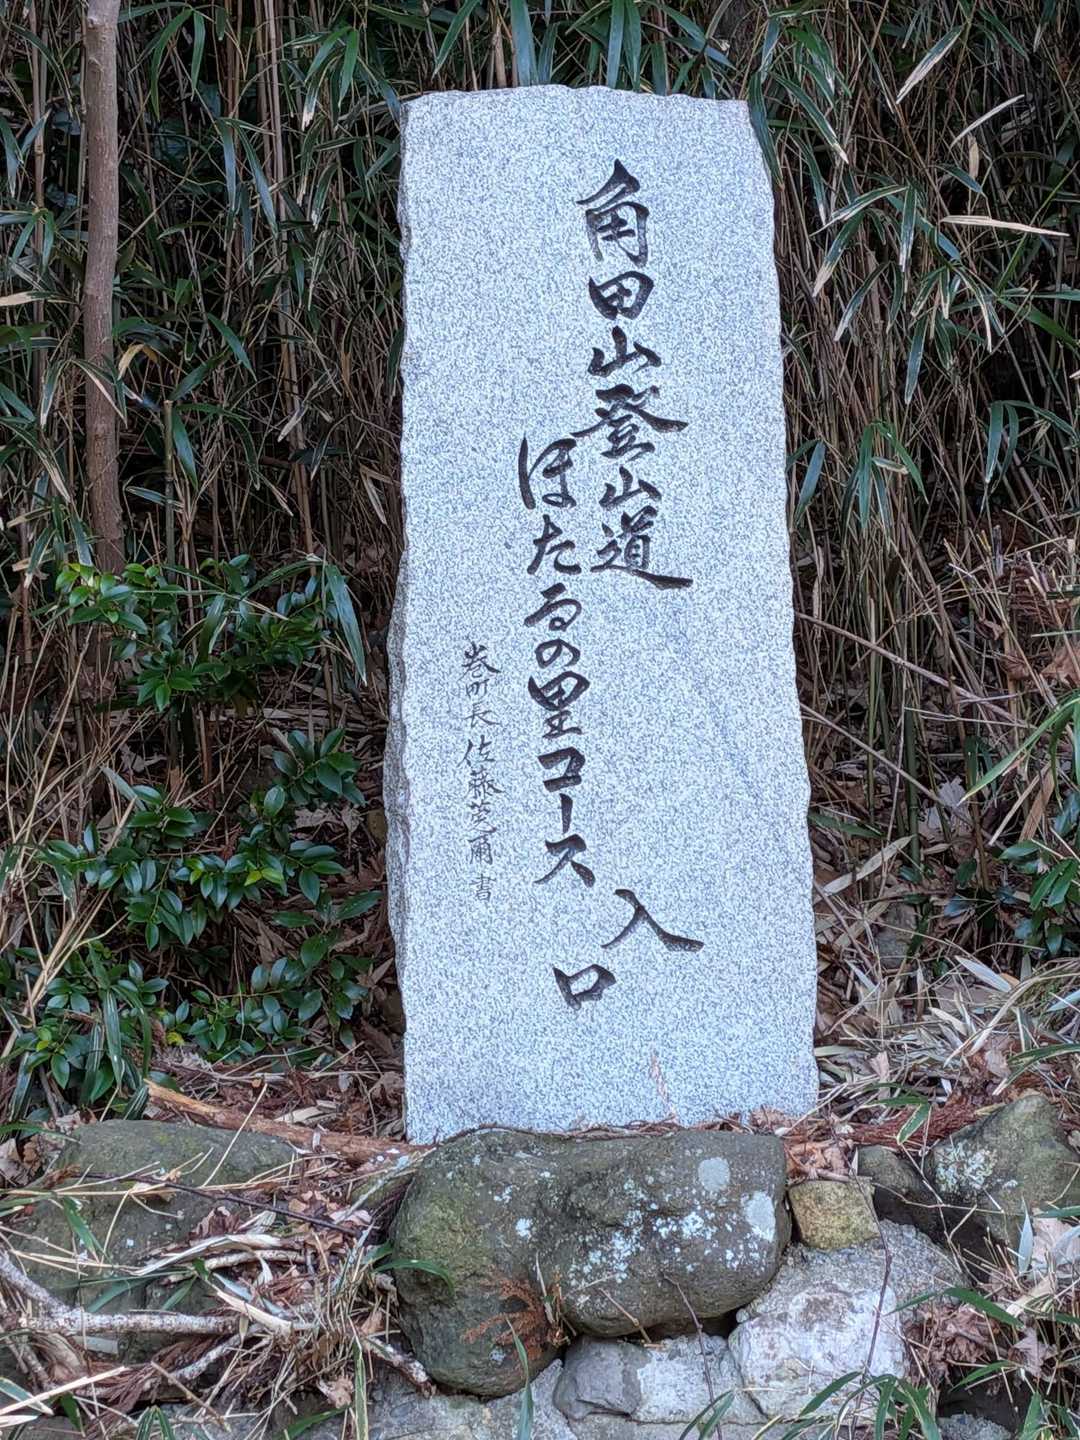 角田山登山道
ほたるの里コース
入口
巻町長 佐藤莞爾 書